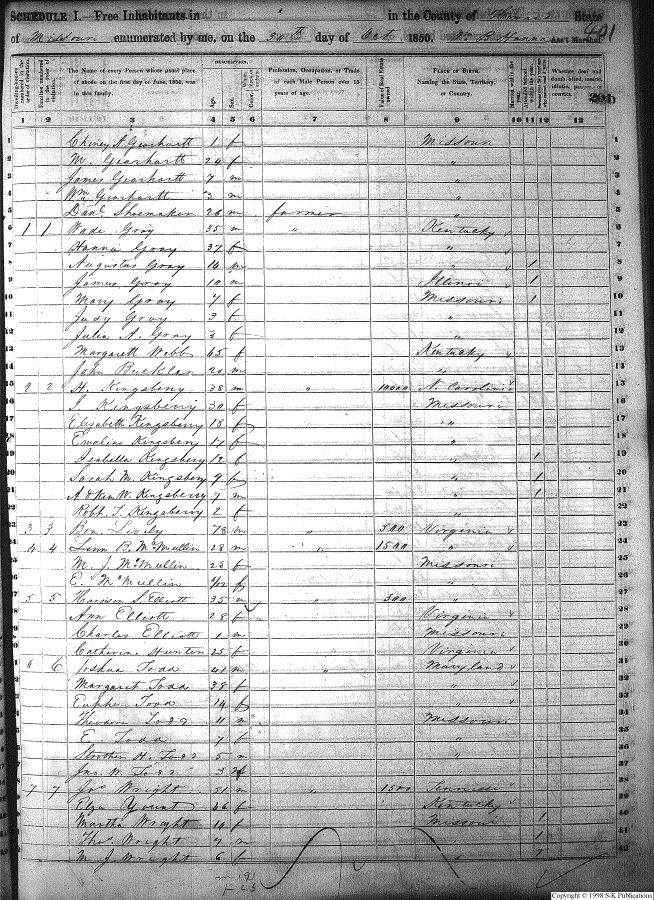 SCHEDULE I.—Free Inhabitants in in the County of State
of Missouri enumerated by me, on the 30th day of Oct 1850. Wm Hanna Ass't Marshal. 401
DESCRIPTION.
The Name of every Person whose usual place of abode on the first day of June, 1850, was in this family. Age. Sex. Color. Profession, Occupation, or Trade of each Male Person over 15 years of age. Value of Real Estate owned. PLACE OF BIRTH. Naming the State, Territory, or Country. Whether deaf and dumb, blind, insane, idiotic, pauper, or convict.
1 2 3 4 5 6 7 8 9 10 11 12 13
1 Gearhartt 1 f Missouri 1
2 M. Gearhartt 24 f " 2
3 James Gearhartt 7 m " 3
4 Wm Gearhartt 3 m " 4
5 Danl Shoemaker 20 m farmer " 5
6 1 1 Wade Gray 35 m " Kentucky 6
7 Hanna Gray 37 f " 7
8 Augustus Gray 14 m " 1 8
9 James Gray 10 m Illinoi 1 9
10 Mary Gray 7 f Missouri 1 10
11 Judy Gray 3 f " 11
12 Julia A. Gray 3 f " 12
13 Margarett Webb 65 f Kentucky 13
14 John Buckler 20 m " 14
15 2 2 H. Kingsberry 38 m " 10000 N. Carolina 15
S. Kingsberry 30 f Missouri 16
Elizabeth Kingsberry 18 f "
Emaline Kingsberry 14 f "
Isabella Kingsberry 12 f " 1
Sarah M. Kingsberry 9 f " 1
Kingsberry 7 m " 1
Robt T. Kingsberry 2 f "
3 3 Ben. Lively 78 m " 500 Virginia
4 4 Linn B. McMullin 28 m " 1500 "
M. J. McMullin 23 f Missouri
E. McMullin f "
5 5 Harrison S. Elliott 35 m " 300 "
Ann Elliott 28 f Virginia
Charles Elliott 1 m Missouri
Catherine Hunton 25 f Virginia
6 6 Joshua Todd 41 m " Maryland
Margaret Todd 38 f "
Todd 14 f "
Theodore Todd 11 m Missouri
E. Todd 7 f "
Strother H. Todd 5 m "
Jas. W. Todd 3 "
7 7 Jno Wright 51 m " 1500 Tennessee
Eliza Yount 46 f Kentucky
Martha Wright 14 f Missouri 1
Thos Wright 9 m " 1
M J Wright 6 f "
m 19
f 23
Copyright © 1998 S-K Publications